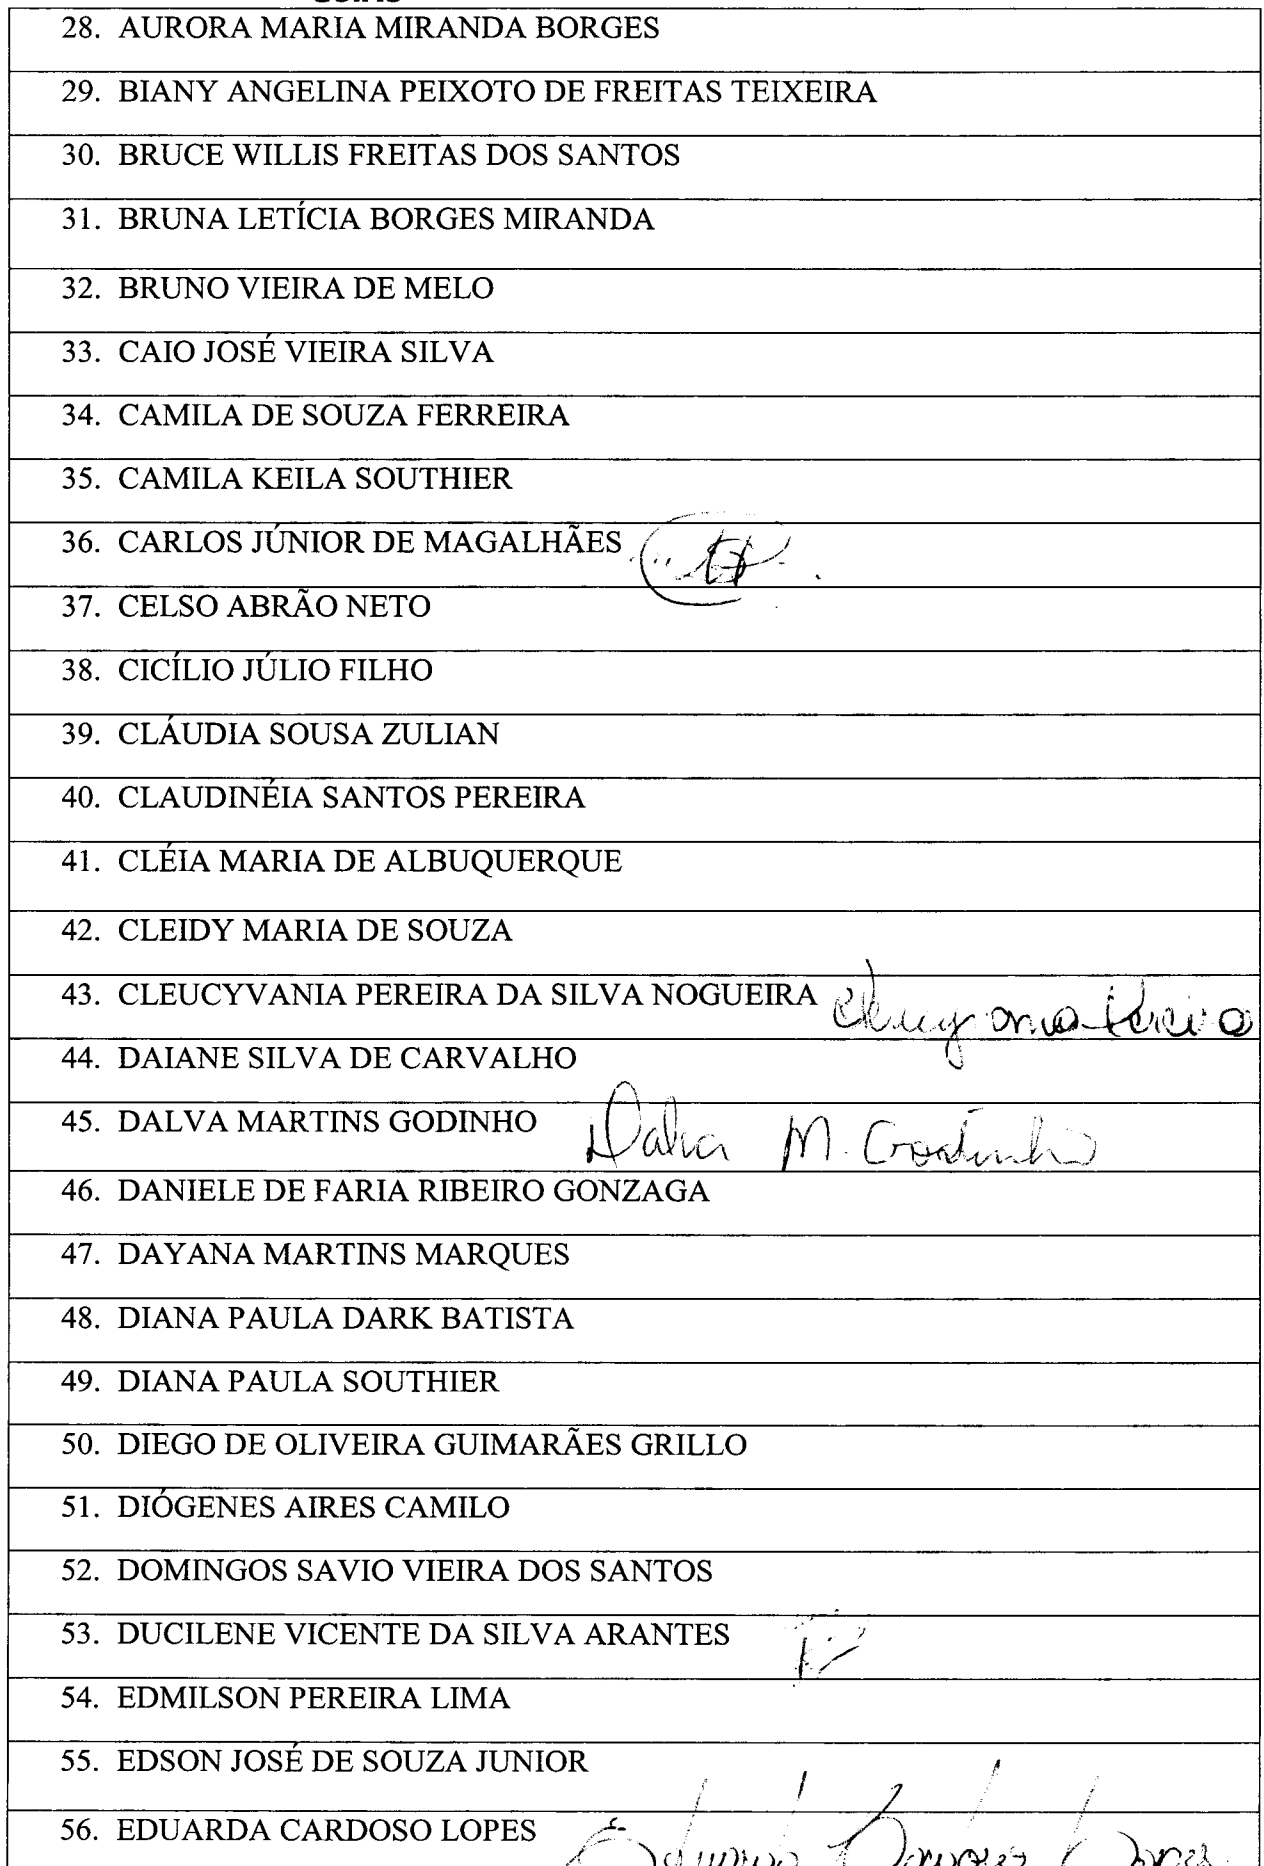 28. AURORA MARIA MIRANDA BORGES
29. BIANY ANGELINA PEIXOTO DE FREITAS TEIXEIRA
30. BRUCE WILLIS FREITAS DOS SANTOS
31. BRUNA LETÍCIA BORGES MIRANDA
32. BRUNO VIEIRA DE MELO
33. CAIO JOSÉ VIEIRA SILVA
34. CAMILA DE SOUZA FERREIRA
35. CAMILA KEILA SOUTHIER
36. CARLOS JÚNIOR DE MAGALHÃES
37. CELSO ABRÃO NETO
38. CICÍLIO JÚLIO FILHO
39. CLÁUDIA SOUSA ZULIAN
40. CLAUDINÉIA SANTOS PEREIRA
41. CLÉIA MARIA DE ALBUQUERQUE
42. CLEIDY MARIA DE SOUZA
43. CLEUCYVANIA PEREIRA DA SILVA NOGUEIRA
44. DAIANE SILVA DE CARVALHO
45. DALVA MARTINS GODINHO Dalva M. Godinho
46. DANIELE DE FARIA RIBEIRO GONZAGA
47. DAYANA MARTINS MARQUES
48. DIANA PAULA DARK BATISTA
49. DIANA PAULA SOUTHIER
50. DIEGO DE OLIVEIRA GUIMARÃES GRILLO
51. DIÓGENES AIRES CAMILO
52. DOMINGOS SAVIO VIEIRA DOS SANTOS
53. DUCILENE VICENTE DA SILVA ARANTES
54. EDMILSON PEREIRA LIMA
55. EDSON JOSÉ DE SOUZA JUNIOR
56. EDUARDA CARDOSO LOPES